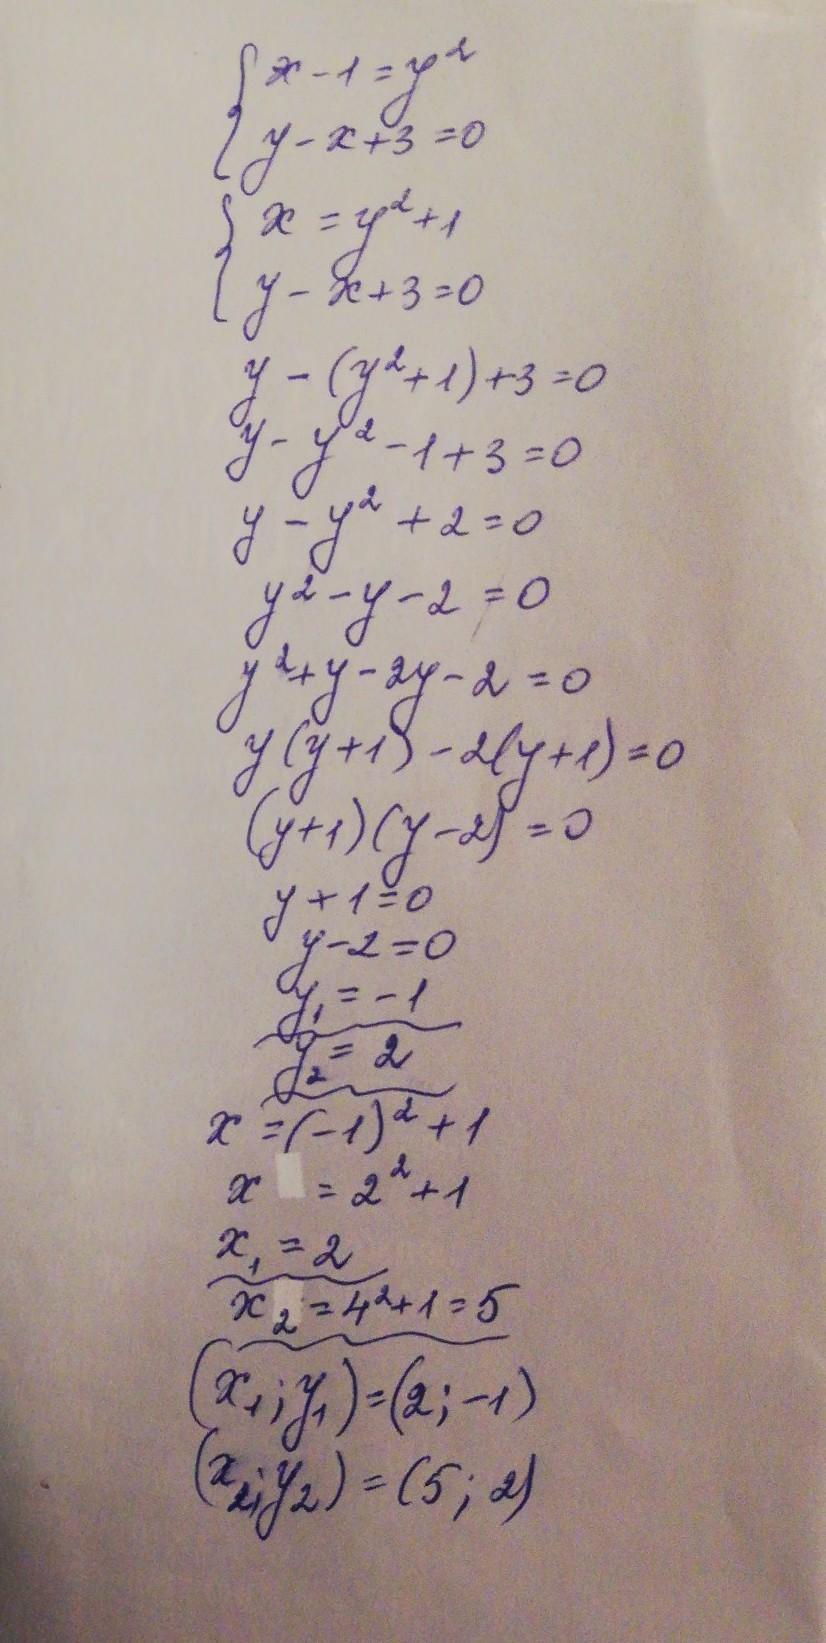 x - 1 = y²
y - x + 3 = 0
x = y² + 1
y - x + 3 = 0
y - (y² + 1) + 3 = 0
y - y² - 1 + 3 = 0
y - y² + 2 = 0
y² - y - 2 = 0
y² + y - 2y - 2 = 0
y(y + 1) - 2(y + 1) = 0
(y + 1)(y - 2) = 0
y + 1 = 0
y - 2 = 0
y₁ = -1
y₂ = 2
x = (-1)² + 1
x = 2² + 1
x₁ = 2
x₂ = 4² + 1 = 5
(x₁; y₁) = (2; -1)
(x₂; y₂) = (5; 2)